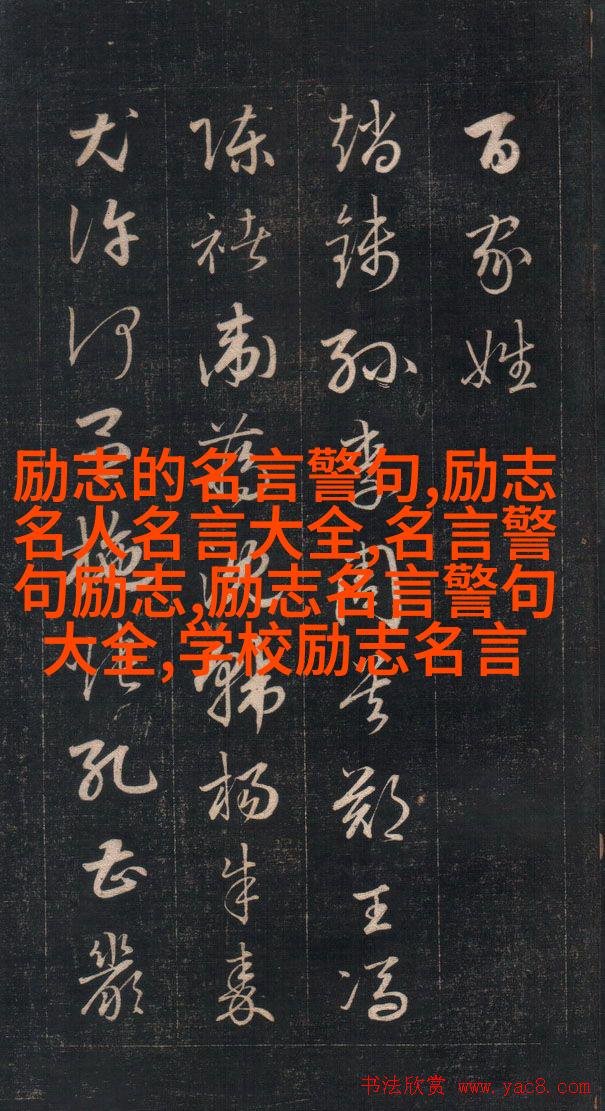 百家姓
趙錢孫李周吳鄭王馮
陳褚衛蔣沈韓楊朱秦
尤許何呂施張孔曹嚴
励志的名言警句,励志
名人名言大全,名言警
句励志,励志名言警句
大全,学校励志名言
书法欣赏 www.yac8.com